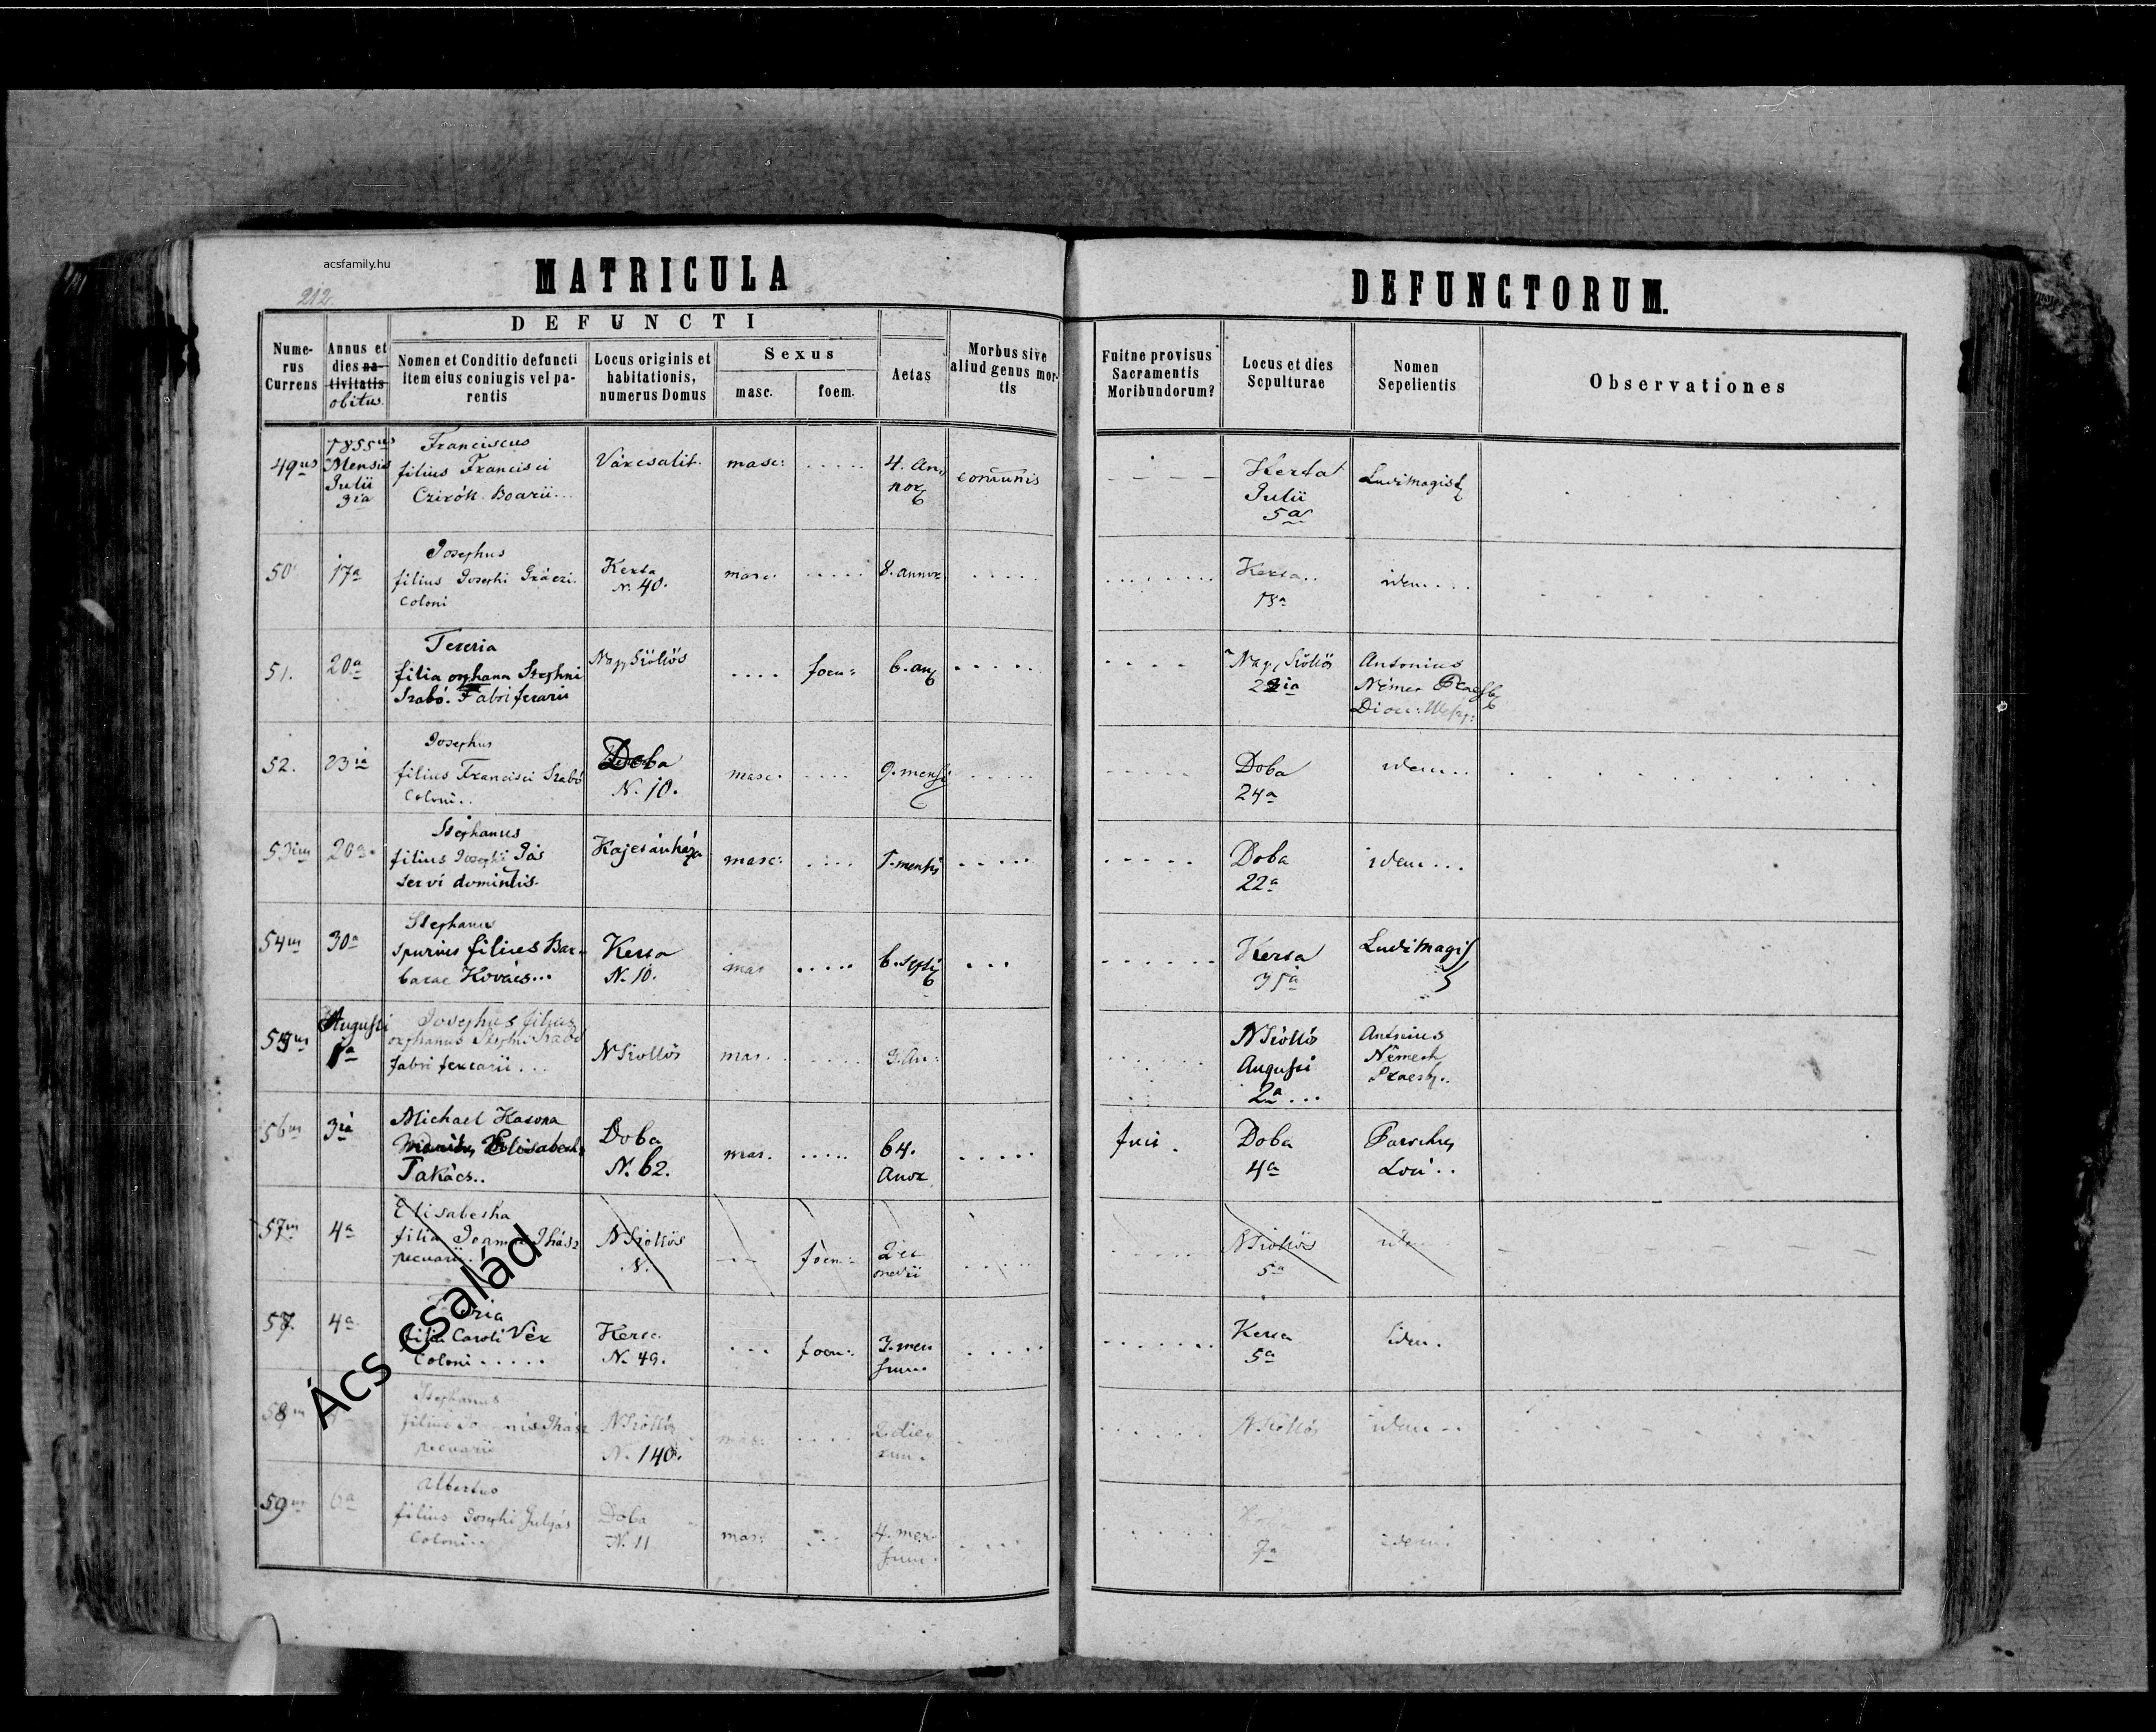 acsfamily.hu
212.
MATRICULA
DEFUNCTORUM.
DEFUNCTI
Nume-
rus
Currens
Annus et
dies na-
tivitatis
obitus.
Nomen et Conditio defuncti
item eius coniugis vel pa-
rentis
Locus originis et
habitationis,
numerus Domus
Sexus
masc.
foem.
Aetas
Morbus sive
aliud genus mor-
tis
Fuitne provisus
Sacramentis
Moribundorum?
Locus et dies
Sepulturae
Nomen
Sepelientis
Observationes
49us
1855us
Mensis
Julii
3ia
Franciscus
filius Francisci
Czirók Boarii...
masc:
4. an,
nor
comunis
Kerta
Julii
5a
Ludimagist
50
17a
Josephus
filius Josephi
Coloni
Kerta
N. 40.
masc.
8. annor
Kerta..
18a
idem....
51.
20a
Teresia
filia orphana Stephni
Szabó. Fabri ferarii
Nagy Szőllős
foem:
6. an
Nagy Szőllős
Antonius
Német
52.
23ia
Josephus
filius Francisci Szabó
Coloni..
Doba
N. 10.
masc.
9. mens
Doba
24a
idem..
20a
Stephanus
filius Josephi
servi
Kajesánháza
masc:
mensis
Doba
22a
idem...
54us
30a
Stephanus
spurius filius Bar-
barae Kovács...
Kerta
N. 10.
mas
Kerta
31a
Ludimagis
55us
Augusti
1a
Josephus filius
orphanus Stephni Szabó
fabri ferrarii...
N Szőllős
mas.
3. An:
N Szőllős
Augusti
2a...
Antonius
Németh
Praesb..
56us
3ia
Michael Katona
Elisabeth
Takács..
Doba
N. 62.
mas.
64.
Anor
fuit
Doba
4a
Parochus
Loci..
57us
4a
Elisabetha
filia Joannis Ihász
pecuarii.
N Szőllős
N.
foem:
2 et
medii
N Szőllős
5a
idem
57.
4a
filia Caroli Vér
Coloni.....
Kerta.
N. 49.
foem:
3. men
sium.
Kerta
5a
idem.
58us
Stephanus
filius Joannis Ihász
pecuarii
N Szőllős
N. 140.
mas:
2 die,
rum.
N Szőllős
idem..
59us
6a
Albertus
filius Josephi Gulyás
Coloni..
Doba
N. 11
mas:
4. men
sium.
7a
idem.
Ács család